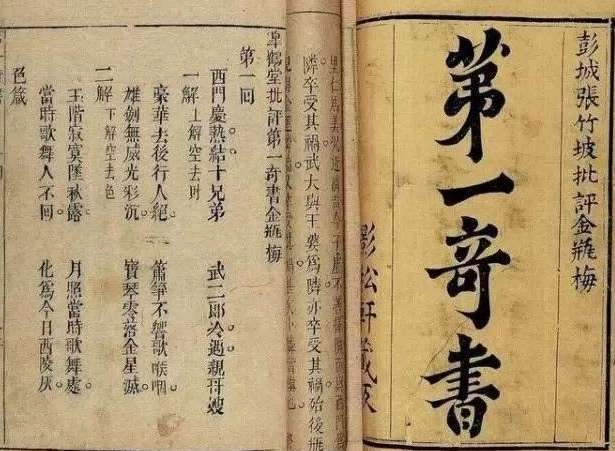 彭城張竹坡批評金瓶梅
第一奇書
影松軒藏
隣卒受其禍武大與王婆為隣亦卒受其禍殆後瓶
皋鶴堂批評第一奇書金瓶梅
第一回
西門慶熱結十兄弟　武二郎冷遇親哥嫂
一解　上解空去財
豪華去後行人絕　簫箏不響歌喉咽
雄劍無威光彩沉　寶琴零落金星滅
二解　下解空去色
玉階寂寞墜秋露　月照當時歌舞處
當時歌舞人不回　化為今日西陵灰
色箴